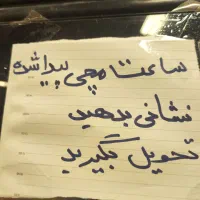 ساعت مچی پیدا شده
نشانی بدهید
تحویل بگیرید